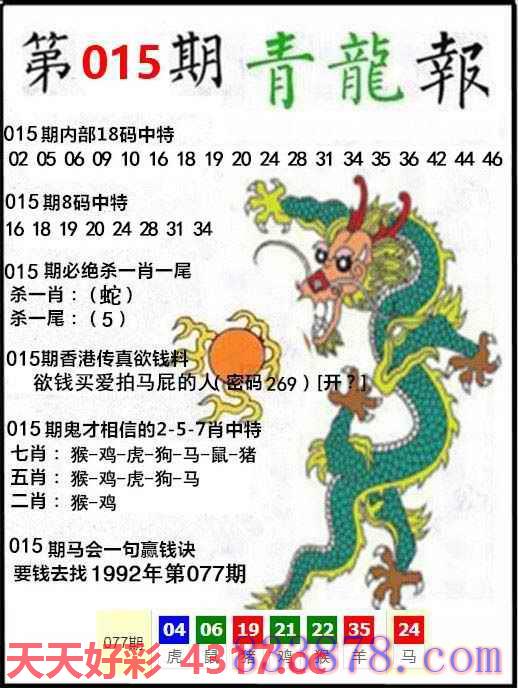 第015期青龍報
015期内部18码中特
02 05 06 09 10 16 18 19 20 24 28 31 34 35 36 42 44 46
015期8码中特
16 18 19 20 24 28 31 34
015期必绝杀一肖一尾
杀一肖：（蛇）
杀一尾：（5）
015期香港传真欲钱料
欲钱买爱拍马屁的人（密码269）[开？]
015期鬼才相信的2-5-7肖中特
七肖：猴-鸡-虎-狗-马-鼠-猪
五肖：猴-鸡-虎-狗-马
二肖：猴-鸡
015期马会一句赢钱诀
要钱去找1992年第077期
077期 04 06 19 21 22 35 24
虎 鼠 猪 鸡 猴 羊 马
天天好彩 4317.cc